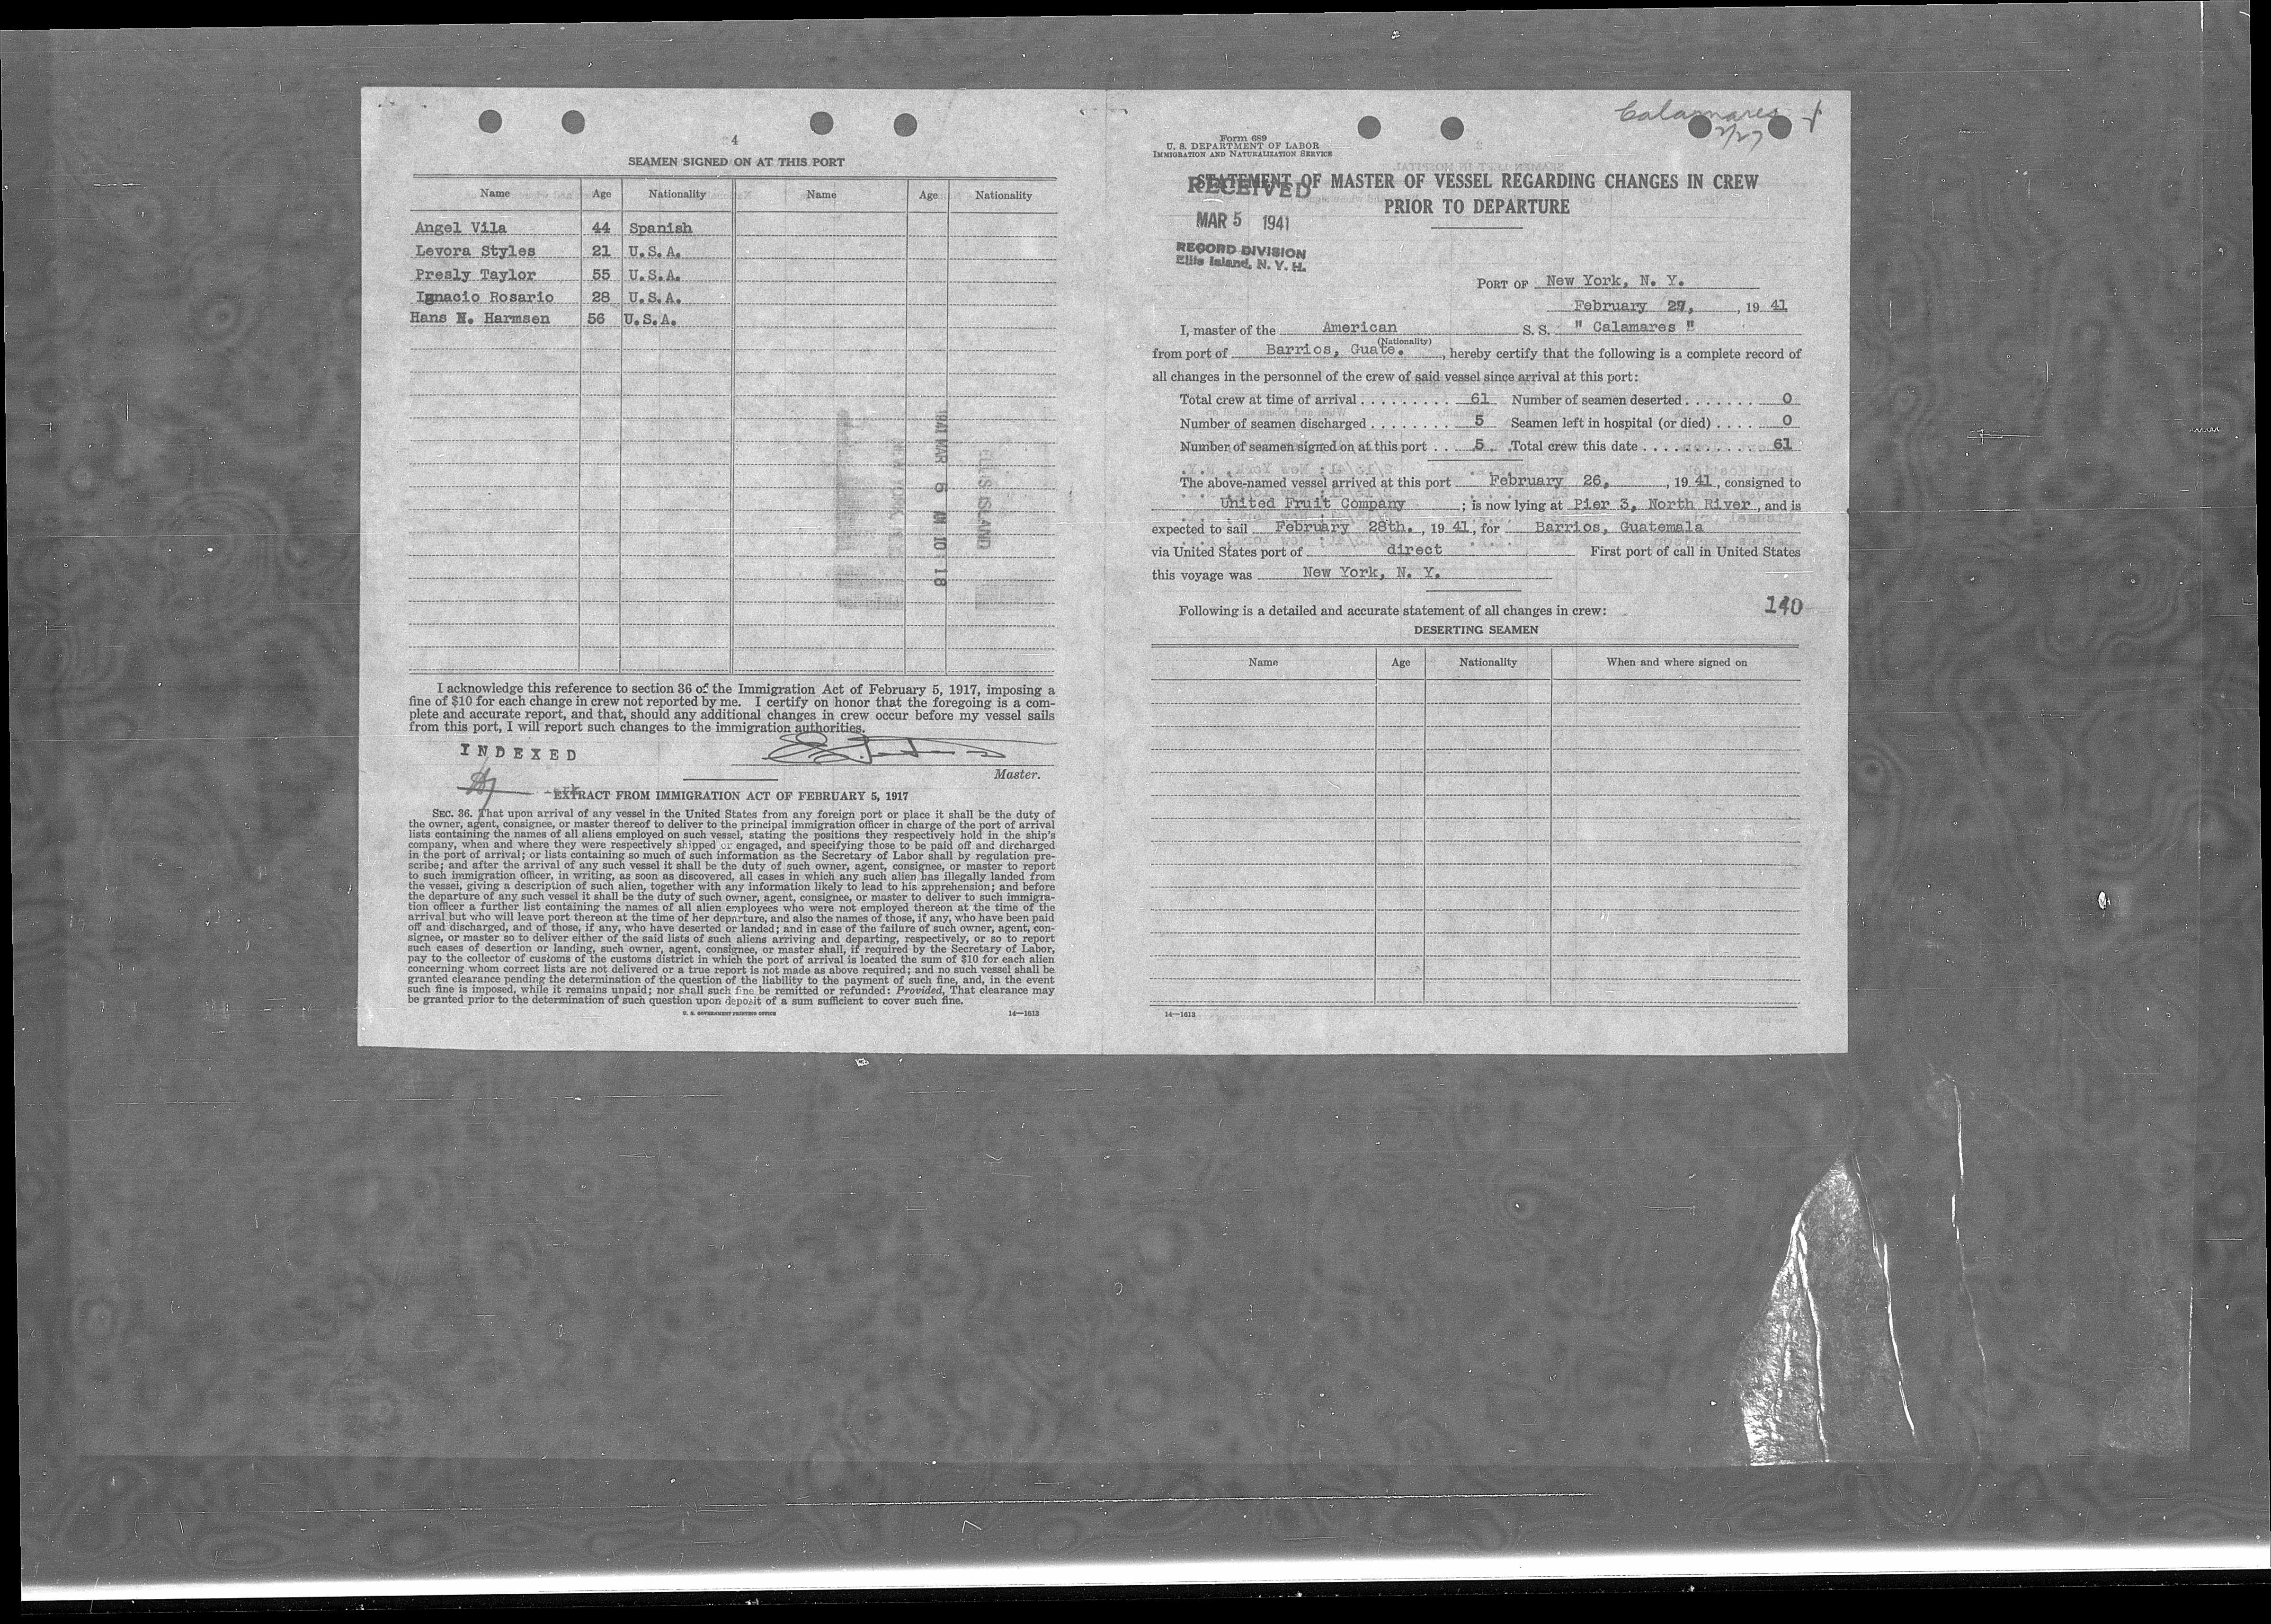 4
SEAMEN SIGNED ON AT THIS PORT
Name Age Nationality Name Age Nationality
Angel Vila 44 Spanish
Levora Styles 21 U.S.A.
Presly Taylor 55 U.S.A.
Ignacio Rosario 28 U.S.A.
Hans N. Harmsen 56 U.S.A.
1941 MAR 6 AM 10 18
ELLIS ISLAND
I acknowledge this reference to section 36 of the Immigration Act of February 5, 1917, imposing a
fine of $10 for each change in crew not reported by me. I certify on honor that the foregoing is a com-
plete and accurate report, and that, should any additional changes in crew occur before my vessel sails
from this port, I will report such changes to the immigration authorities.
INDEXED
Master.
EXTRACT FROM IMMIGRATION ACT OF FEBRUARY 5, 1917
SEC. 36. That upon arrival of any vessel in the United States from any foreign port or place it shall be the duty of
the owner, agent, consignee, or master thereof to deliver to the principal immigration officer in charge of the port of arrival
lists containing the names of all aliens employed on such vessel, stating the positions they respectively hold in the ship's
company, when and where they were respectively shipped or engaged, and specifying those to be paid off and discharged
in the port of arrival; or lists containing so much of such information as the Secretary of Labor shall by regulation pre-
scribe; and after the arrival of any such vessel it shall be the duty of such owner, agent, consignee, or master to report
to such immigration officer, in writing, as soon as discovered, all cases in which any such alien has illegally landed from
the vessel, giving a description of such alien, together with any information likely to lead to his apprehension; and before
the departure of any such vessel it shall be the duty of such owner, agent, consignee, or master to deliver to such immigra-
tion officer a further list containing the names of all alien employees who were not employed thereon at the time of the
arrival but who will leave port thereon at the time of her departure, and also the names of those, if any, who have been paid
off and discharged, and of those, if any, who have deserted or landed; and in case of the failure of such owner, agent, con-
signee, or master so to deliver either of the said lists of such aliens arriving and departing, respectively, or so to report
such cases of desertion or landing, such owner, agent, consignee, or master shall, if required by the Secretary of Labor,
pay to the collector of customs of the customs district in which the port of arrival is located the sum of $10 for each alien
concerning whom correct lists are not delivered or a true report is not made as above required; and no such vessel shall be
granted clearance pending the determination of the question of the liability to the payment of such fine, and, in the event
such fine is imposed, while it remains unpaid; nor shall such fine be remitted or refunded: Provided, That clearance may
be granted prior to the determination of such question upon deposit of a sum sufficient to cover such fine.
U. S. GOVERNMENT PRINTING OFFICE 14—1613
Calamares
2/27
Form 689
U. S. DEPARTMENT OF LABOR
IMMIGRATION AND NATURALIZATION SERVICE
STATEMENT OF MASTER OF VESSEL REGARDING CHANGES IN CREW
PRIOR TO DEPARTURE
RECEIVED
MAR 5 1941
RECORD DIVISION
Ellis Island, N. Y. H.
PORT OF New York, N. Y.
February 27, , 19 41
I, master of the American S. S. " Calamares "
(Nationality)
from port of Barrios, Guate. , hereby certify that the following is a complete record of
all changes in the personnel of the crew of said vessel since arrival at this port:
Total crew at time of arrival . . . . . . . . . 61 Number of seamen deserted . . . . . . . 0
Number of seamen discharged . . . . . . . . 5 Seamen left in hospital (or died) . . . . 0
Number of seamen signed on at this port . . 5 Total crew this date . . . . . . . . . . . 61
The above-named vessel arrived at this port February 26, , 19 41, consigned to
United Fruit Company ; is now lying at Pier 3, North River, and is
expected to sail February 28th. , 19 41, for Barrios, Guatemala
via United States port of direct First port of call in United States
this voyage was New York, N. Y.
Following is a detailed and accurate statement of all changes in crew:
140
DESERTING SEAMEN
Name Age Nationality When and where signed on
14—1613